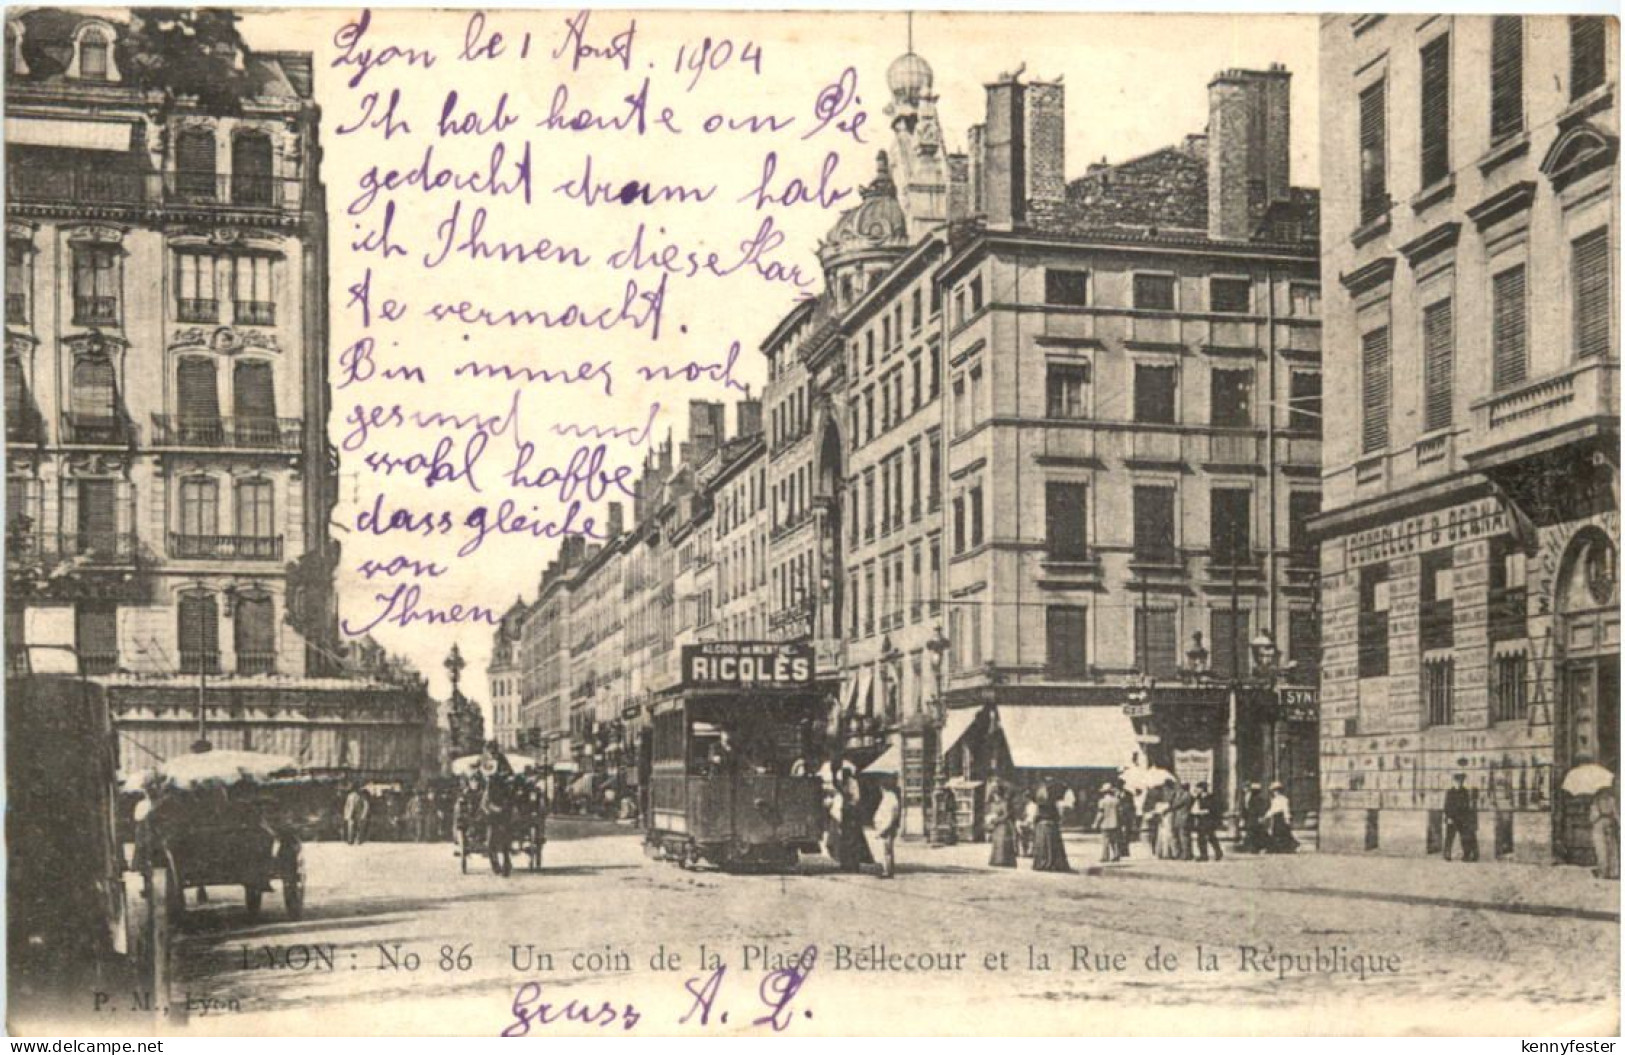 Lyon le 1 Aout. 1904
Ich hab heute an Sie
gedacht drum hab
ich Ihnen diese Kar
te vermacht.
Bin immer noch
gesund und
wohl hoffe
dassgleiche
von
Ihnen
ALCOOL DE MENTHE
RICQLÈS
SYN
LYON : No 86 Un coin de la Place Bellecour et la Rue de la République
P. M., Lyon
Gruss A. L.
www.delcampe.net
kennyfester